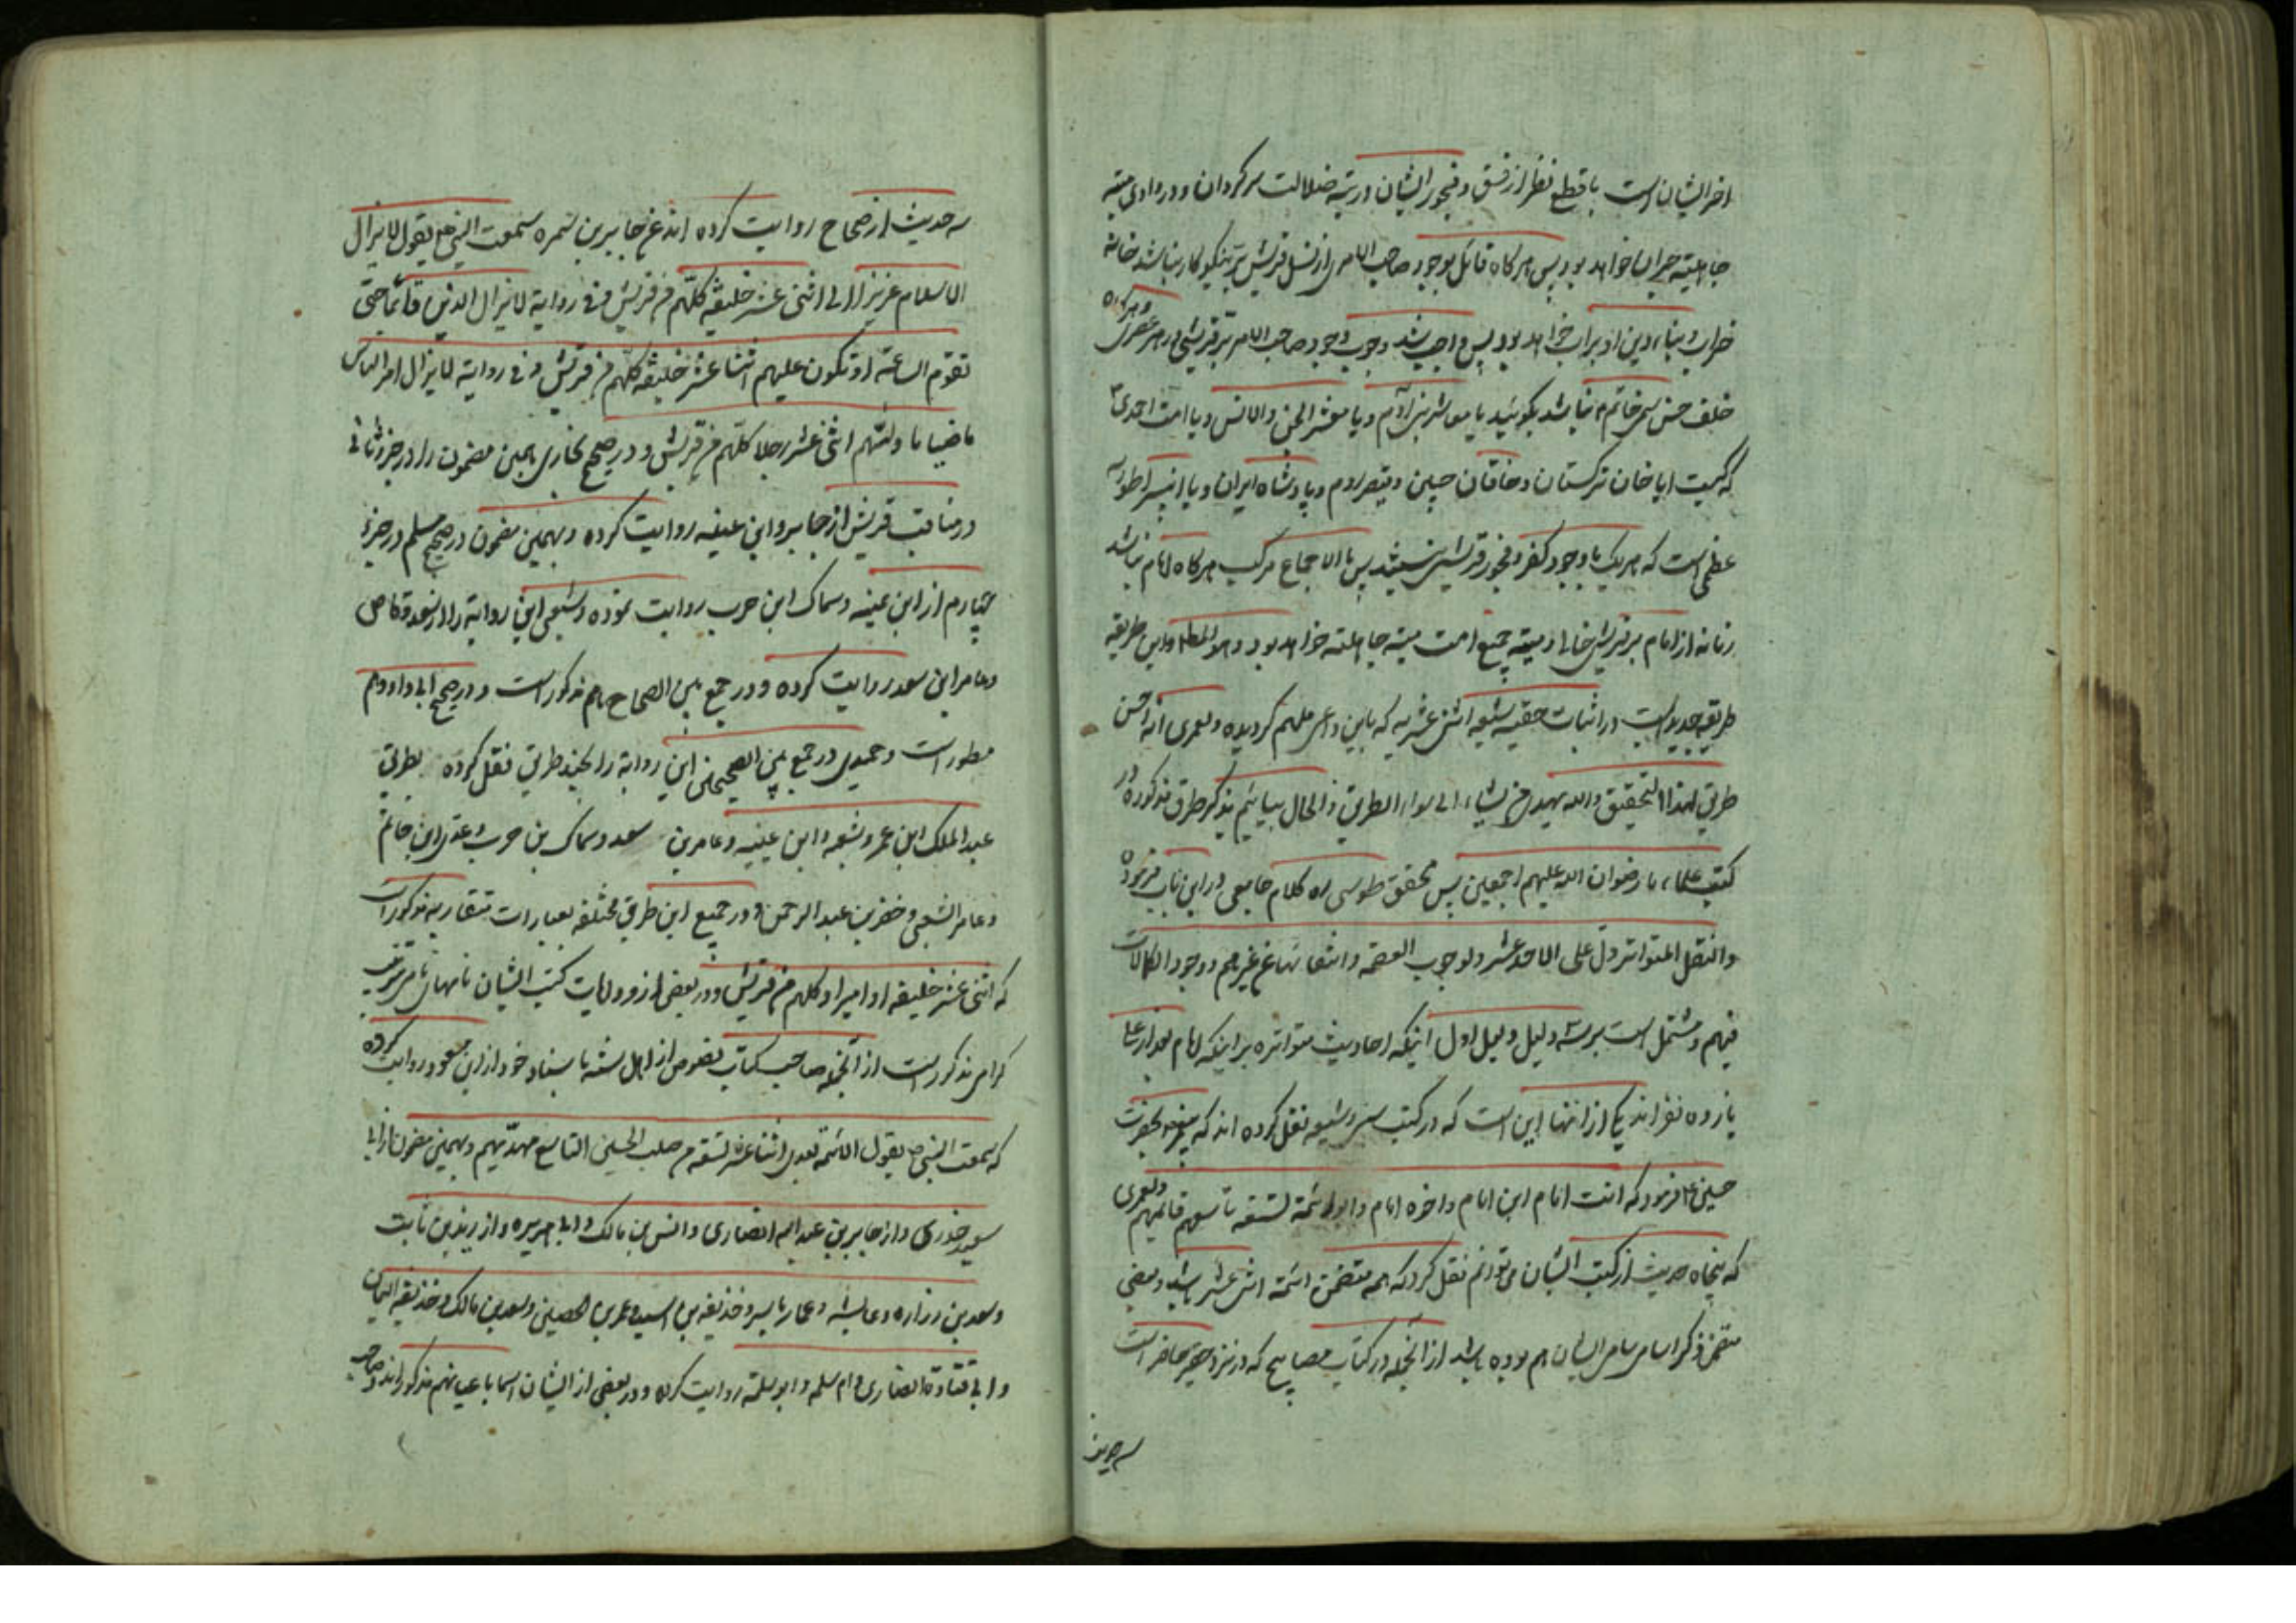 اخر ایشان است با قطع نظر از فسق و فجور ایشان در تیه ضلالت سرکردان و در وادی میته
جاهلیته حیران خواهد بود پس هرکاه قائل بوجود صاحب الامری از نسل قریش نیکوکار نباشد خانه
خراب و بناء دین او براب خواهد بود پس واجب شد وجوب وجود صاحب الامر قریشی در هر عصری و هرکاه
خلف حسن سمی خاتم نباشد بکوئید یا معاشر بنی آدم و یا معشر الجن والانس و یا امت احمدی
که کیست ایا خان ترکستان و خاقان چین و قیصر روم و پادشاه ایران و یا
عظمی است که هر یک با وجود کفر و فجور قرشی نیستند پس بالاجماع مرکب هرکاه امام نباشد
زمانه از امام بر قریش خالی و میته جمیع امت میته جاهلیته خواهد بود و هو المطلوب و این طریقه
طریقه جدید است در اثبات حقیه شیعه اثنی عشریه که باین داعی ملهم کردیده و لعمری انه احسن
طریق لهذا التحقیق والله یهدی من یشاء الی سواء الطریق و الحال بیائیم بذکر طرق مذکوره در
کتب علماء ما رضوان الله علیهم اجمعین پس محقق طوسی ره کلام جامعی در این باب فرموده
والنقل المتواتر دل علی الاحد عشر و لوجوب العصمة وانتفائها عن غیرهم و وجود الکمالات
فیهم و مشتمل است بر سه دلیل دلیل اول اینکه احادیث متواتره بر اینکه امام بعد از علی
یازده نفراند یکی از انها این است که در کتب سنی و شیعه نقل کرده اند که پیغمبر بحضرت
حسین ع فرمود که انت امام ابن امام و اخوه امام و ابو ائمة تسعه تاسعهم قائمهم ولعمری
که پنجاه حدیث از کتب ایشان می توانم نقل کرد که همه متضمن ائمه اثنی عشر باشد و بعضی
متضمن ذکر اسامی سامی ایشان هم بوده باشد از انجمله در کتاب مصابیح که در نزد حقیر حاضر است
سه حدیث
سه حدیث از صحاح روایت کرده اند عن جابر بن سمره سمعت النبی ص یقول لا یزال
الاسلام عزیزا الی اثنی عشر خلیفه کلهم من قریش و فی روایة لا یزال الدین قائما حتی
تقوم الساعة او تکون علیهم اثنا عشر خلیفه کلهم من قریش و فی روایة لا یزال امر الناس
ماضیا ما ولیهم اثنی عشر رجلا کلهم من قریش و در صحیح بخاری همین مضمون را در جزو ثانی
در مناقب قریش از جابر و ابن عینیه روایت کرده و بهمین مضمون در صحیح مسلم در جزء
چهارم از ابن عینیه و سماک ابن حرب روایت نموده و شعبی این روایة را از سعد وقاص
و عامر ابن سعد روایت کرده و در جمع بین الصحاح هم مذکور است و در صحیح ابی داود هم
مسطور است و حمیدی در جمع بین الصحیحین این روایة را بچند طریق نقل کرده بطریق
عبد الملک ابن عمر و شعبه و ابن عینیه و عامر بن سعد و سماک بن حرب و عدی ابن حاتم
و عامر الشعبی و حصین بن عبد الرحمن و در جمیع این طریق مختلفه بعبارات متقاربه مذکور است
که اثنی عشر خلیفه او امیرا و کلهم من قریش و در بعضی از روایات کتب ایشان نامهای نامی شریف
کرامی مذکور است از آنجمله صاحب کتاب نصوص از اهل سنه باسناد خود از ابن مسعود روایت کرده
که سمعت النبی ص یقول الائمة بعدی اثنا عشر تسعه من صلب الحسین التاسع مهدیهم و بهمین مضمون از ابی
سعید خدری و از جابر بن عبد الله انصاری و انس بن مالک و ابی هریره و از زید بن ثابت
و سعد بن زراره و عایشه و عمار یاسر و حذیفه بن اسید و عمر بن الحصین و سعد بن مالک و حذیفه الیمان
و ابی قتادة انصاری و ام سلمه و ابو سلمه روایت کرده و در بعضی از ایشان اسما باعیانهم مذکور اند و صاحب